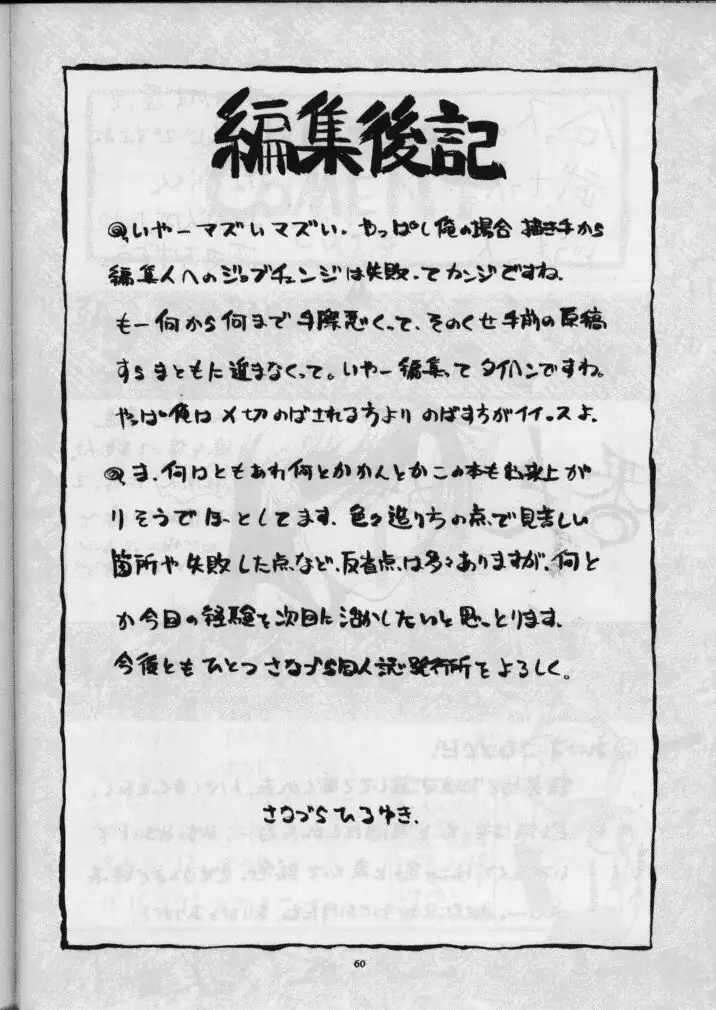 編集後記
@、いやーマズいマズい。やっぱし俺の場合 描き手から
編集人へのジョブチェンジは失敗ってカンジですね。
もー何から何まで手際悪くって、そのくせ手前の原稿
すらまともに進まなくって。いやー編集ってタイヘンですね。
やっぱ俺は〆切のばされる方より のばす方がイイっスよ。
@、ま、何はともあれ何とかかんとかこの本も出来上が
りそうでほーっとしてます。色々 造りちの点で見苦しい
箇所や失敗した点など、反省点は多々ありますが、何と
か今回の経験を次回に活かしたいと思っとります。
今後ともひとつ さなづら同人誌発行所をよろしく。
さなづらひろゆき.
60